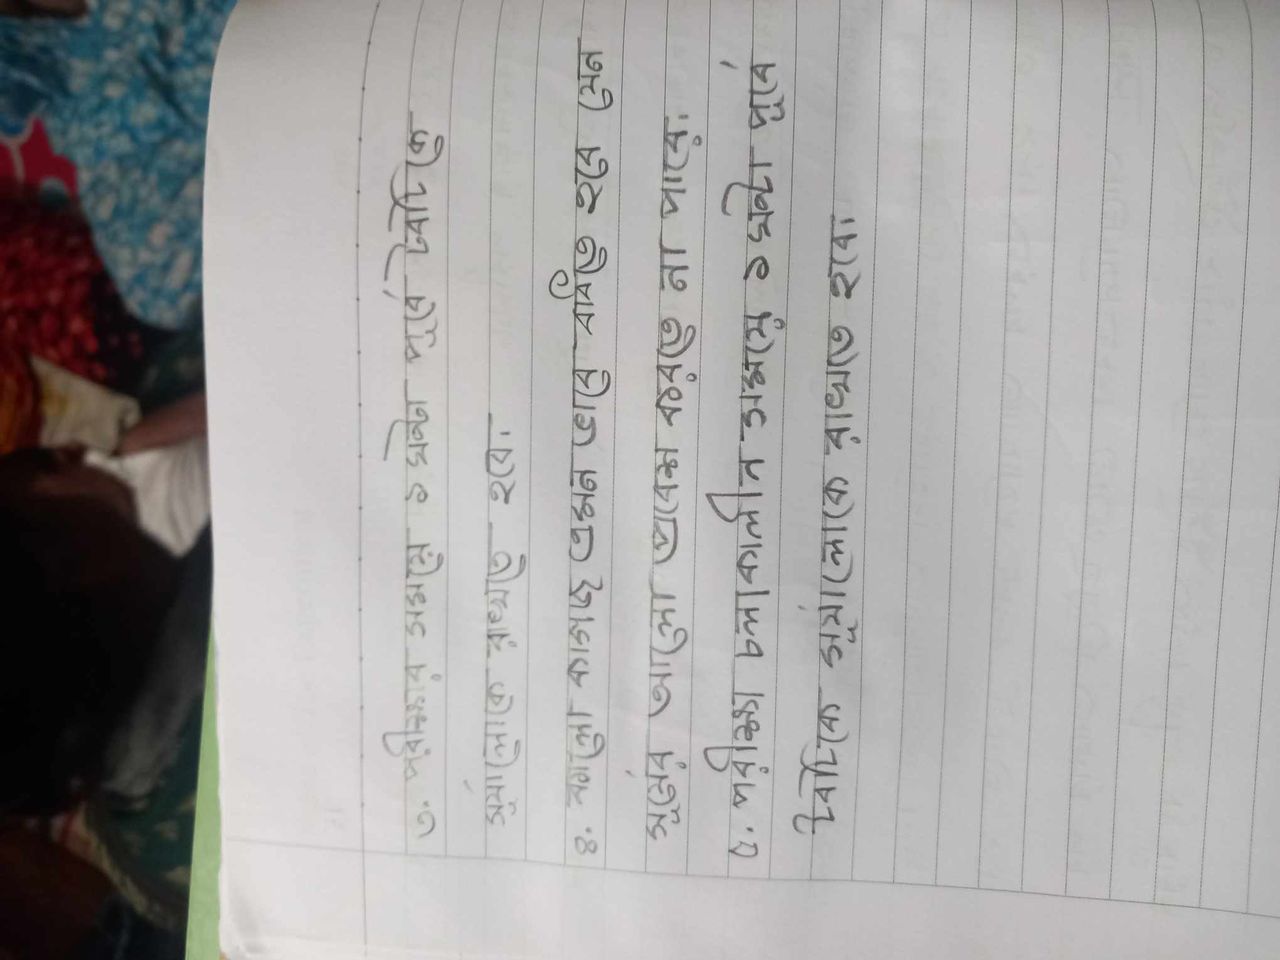 ৩. পরীক্ষার সময় ৪ ঘন্টা পূর্বে টবটিকে
সূর্যালোকে রাখতে হবে.
৪. কালো কাগজ এমন ভাবে বাঁধতে হবে যেন
সূর্যের আলো প্রবেশ করতে না পারে.
৫. পরীক্ষা চলাকালীন সময়ে ৪ ঘন্টা পূর্বে
টবটিকে সূর্যালোকে রাখতে হবে.